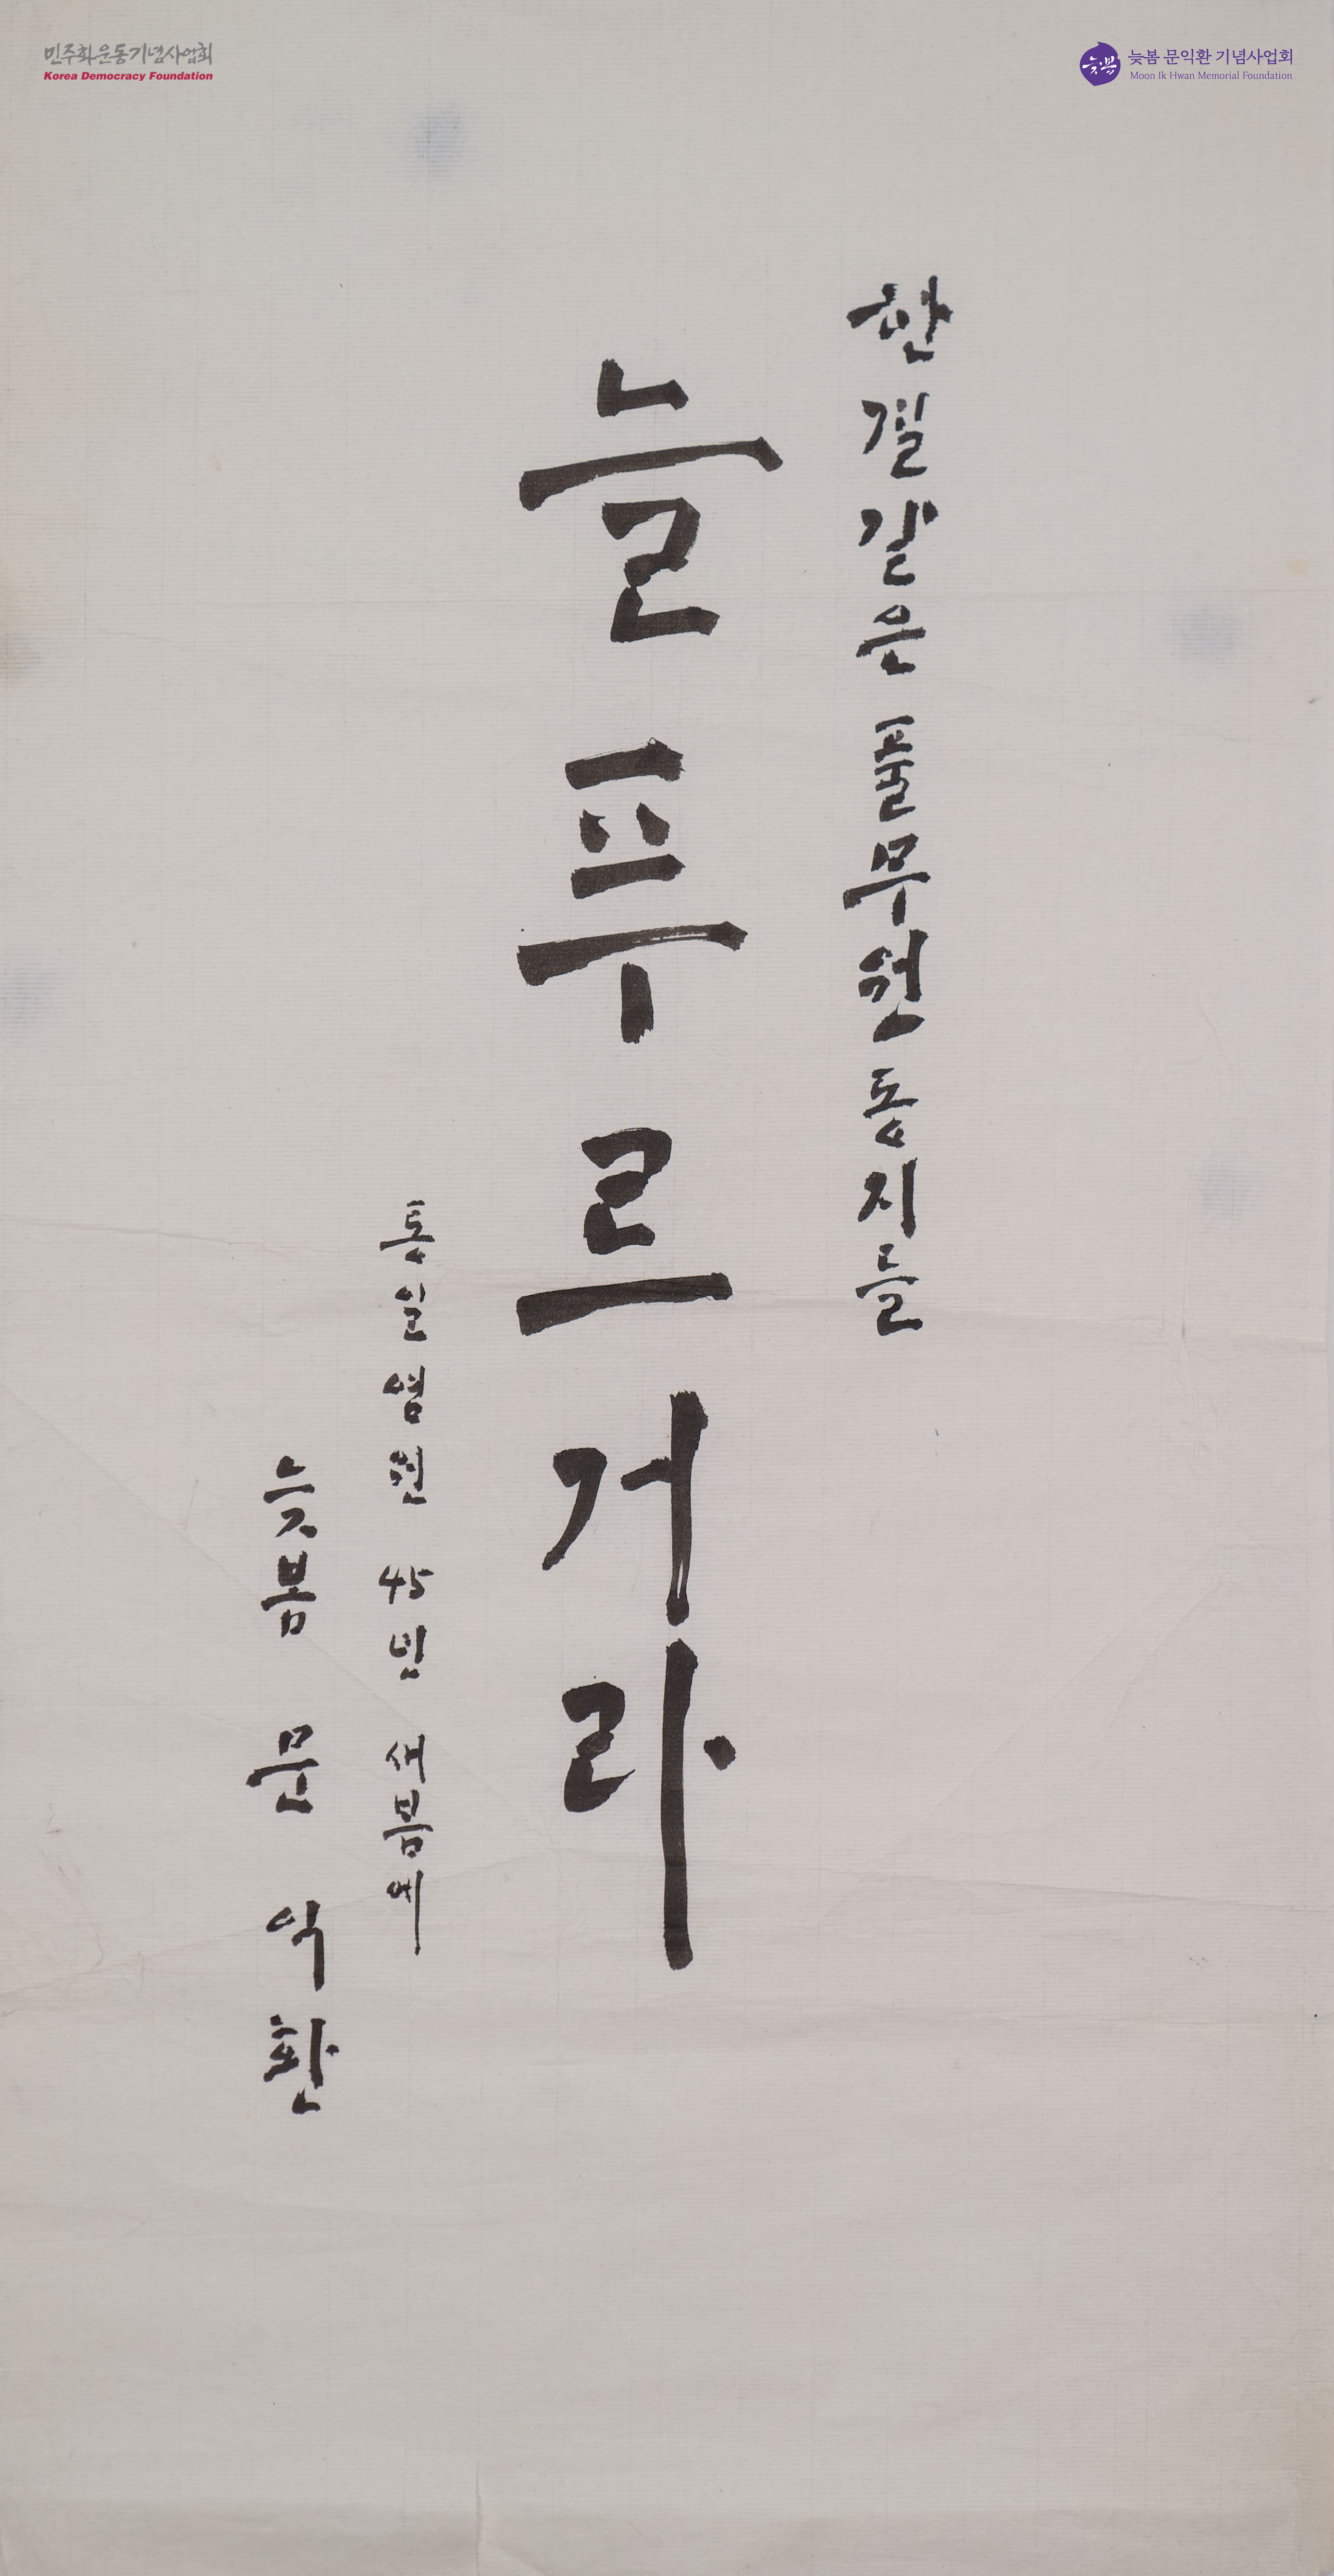 민주화운동기념사업회
Korea Democracy Foundation
늦봄
늦봄 문익환 기념사업회
Moon Ik Hwan Memorial Foundation
한결같은 풀무원 동지들
늘 푸르거라
통일염원 45년 새봄에
늦봄 문익환